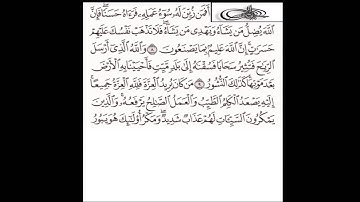 أَفَمَن زُيِّنَ لَهُۥ سُوٓءُ عَمَلِهِۦ فَرَءَاهُ حَسَنًا ۖ فَإِنَّ
ٱللَّهَ يُضِلُّ مَن يَشَآءُ وَيَهْدِى مَن يَشَآءُ ۖ فَلَا تَذْهَبْ نَفْسُكَ عَلَيْهِمْ
حَسَرَٰتٍ ۚ إِنَّ ٱللَّهَ عَلِيمٌۢ بِمَا يَصْنَعُونَ ٨ وَٱللَّهُ ٱلَّذِىٓ أَرْسَلَ
ٱلرِّيَٰحَ فَتُثِيرُ سَحَابًا فَسُقْنَٰهُ إِلَىٰ بَلَدٍ مَّيِّتٍ فَأَحْيَيْنَا بِهِ ٱلْأَرْضَ
بَعْدَ مَوْتِهَا ۚ كَذَٰلِكَ ٱلنُّشُورُ ٩ مَن كَانَ يُرِيدُ ٱلْعِزَّةَ فَلِلَّهِ ٱلْعِزَّةُ جَمِيعًا ۚ
إِلَيْهِ يَصْعَدُ ٱلْكَلِمُ ٱلطَّيِّبُ وَٱلْعَمَلُ ٱلصَّٰلِحُ يَرْفَعُهُۥ ۚ وَٱلَّذِينَ
يَمْكُرُونَ ٱلسَّيِّـَٔاتِ لَهُمْ عَذَابٌ شَدِيدٌ ۖ وَمَكْرُ أُو۟لَٰٓئِكَ هُوَ يَبُورُ